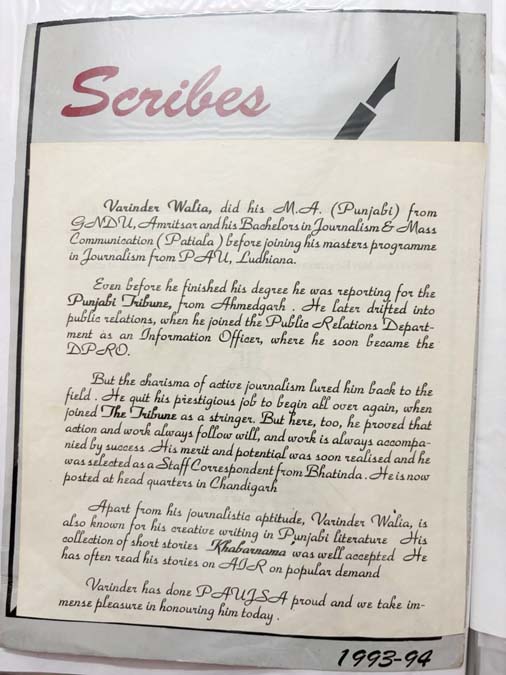 Scribes
Varinder Walia, did his M.A. (Punjabi) from
GNDU, Amritsar and his Bachelors in Journalism & Mass
Communication ( Patiala ) before joining his masters programme
in Journalism from PAU, Ludhiana.
Even before he finished his degree he was reporting for the
Punjabi Tribune, from Ahmedgarh . He later drifted into
public relations, when he joined the Public Relations Depart-
ment as an Information Officer, where he soon became the
DPRO.
But the charisma of active journalism lured him back to the
field . He quit his prestigious job to begin all over again, when
joined The Tribune as a stringer. But here, too, he proved that
action and work always follow will, and work is always accompa-
nied by success .His merit and potential was soon realised and he
was selected as a Staff Correspondent from Bhatinda . He is now
posted at head quarters in Chandigarh
Apart from his journalistic aptitude, Varinder Walia, is
also known for his creative writing in Punjabi literature His
collection of short stories Khabarnama was well accepted He
has often read his stories on AIR on popular demand
Varinder has done PAUJSA proud and we take im-
mense pleasure in honouring him today .
1993-94